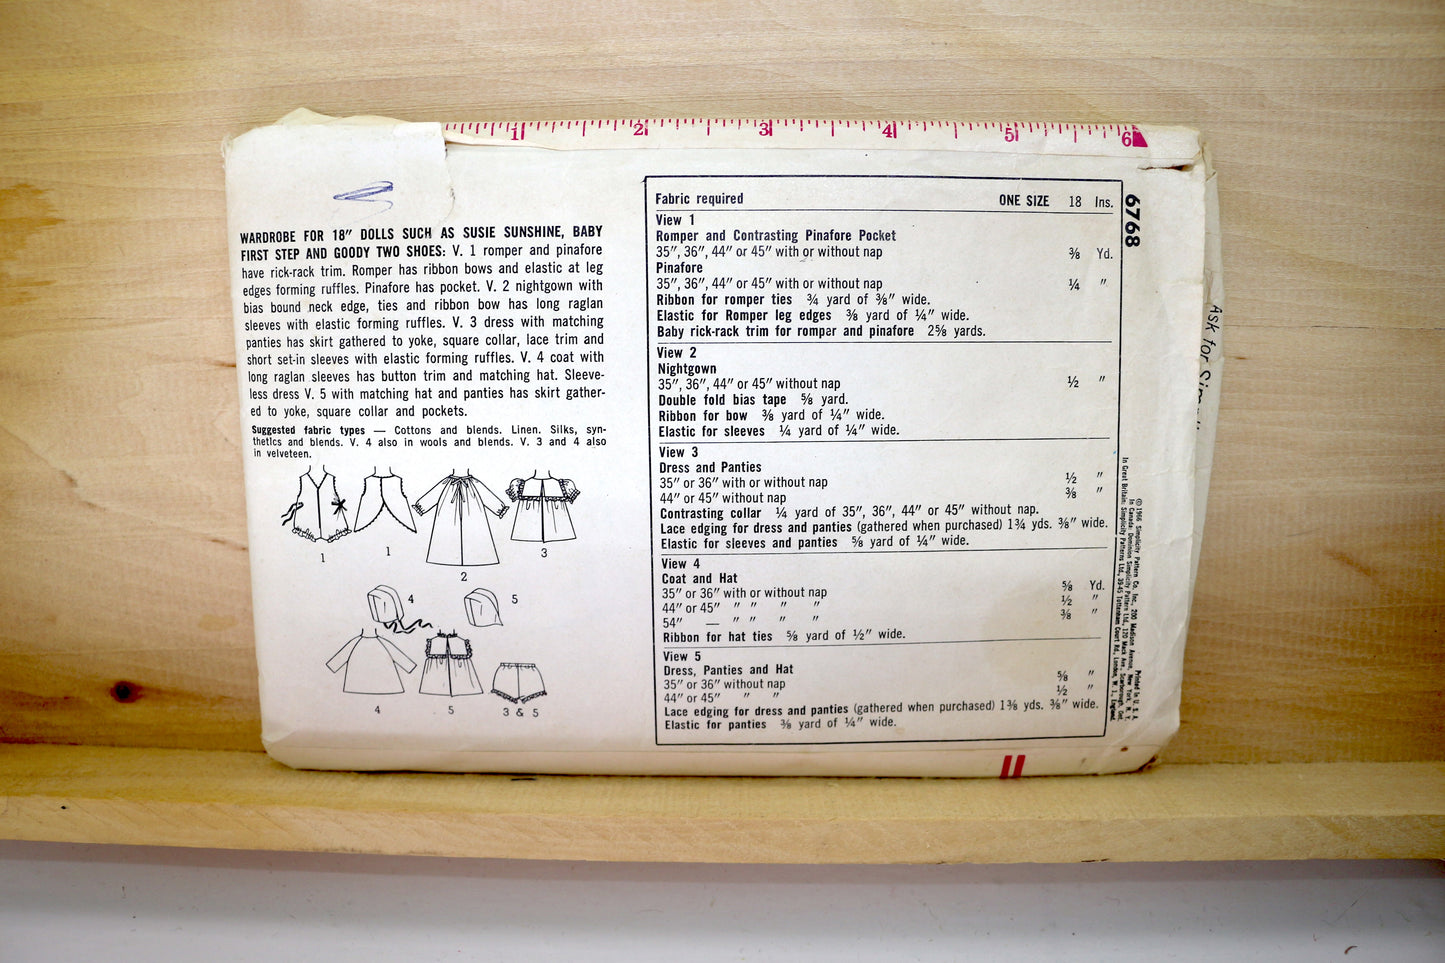 1 2 3 4 5 6
WARDROBE FOR 18" DOLLS SUCH AS SUSIE SUNSHINE, BABY
FIRST STEP AND GOODY TWO SHOES: V. 1 romper and pinafore
have rick-rack trim. Romper has ribbon bows and elastic at leg
edges forming ruffles. Pinafore has pocket. V. 2 nightgown with
bias bound neck edge, ties and ribbon bow has long raglan
sleeves with elastic forming ruffles. V. 3 dress with matching
panties has skirt gathered to yoke, square collar, lace trim and
short set-in sleeves with elastic forming ruffles. V. 4 coat with
long raglan sleeves has button trim and matching hat. Sleeve-
less dress V. 5 with matching hat and panties has skirt gather-
ed to yoke, square collar and pockets.
Suggested fabric types — Cottons and blends. Linen. Silks, syn-
thetics and blends. V. 4 also in wools and blends. V. 3 and 4 also
in velveteen.
1 1 2 3
4 5
4 5 3 & 5
Fabric required ONE SIZE 18 Ins.
View 1
Romper and Contrasting Pinafore Pocket
35", 36", 44" or 45" with or without nap ⅜ Yd.
Pinafore
35", 36", 44" or 45" with or without nap ¼ "
Ribbon for romper ties ¾ yard of ⅜" wide.
Elastic for Romper leg edges ⅜ yard of ¼" wide.
Baby rick-rack trim for romper and pinafore 2⅝ yards.
View 2
Nightgown
35", 36", 44" or 45" without nap ½ "
Double fold bias tape ⅝ yard.
Ribbon for bow ⅜ yard of ¼" wide.
Elastic for sleeves ¼ yard of ¼" wide.
View 3
Dress and Panties
35" or 36" with or without nap ½ "
44" or 45" without nap ⅜ "
Contrasting collar ¼ yard of 35", 36", 44" or 45" without nap.
Lace edging for dress and panties (gathered when purchased) 1¾ yds. ⅜" wide.
Elastic for sleeves and panties ⅝ yard of ¼" wide.
View 4
Coat and Hat
35" or 36" with or without nap ⅝ Yd.
44" or 45" " " " " ½ "
54" — " " " " ⅜ "
Ribbon for hat ties ⅝ yard of ½" wide.
View 5
Dress, Panties and Hat
35" or 36" without nap ⅝ "
44" or 45" " " ½ "
Lace edging for dress and panties (gathered when purchased) 1⅜ yds. ⅜" wide.
Elastic for panties ⅜ yard of ¼" wide.
6768
© 1966 Simplicity Pattern Co. Inc., 200 Madison Avenue, New York, N. Y. Printed in U. S. A.
In Canada: Dominion Simplicity Patterns Ltd., 120 Mack Ave., Scarborough, Ont.
In Great Britain: Simplicity Patterns Ltd., 39-45 Tottenham Court Rd., London, W. 1., England
Ask for